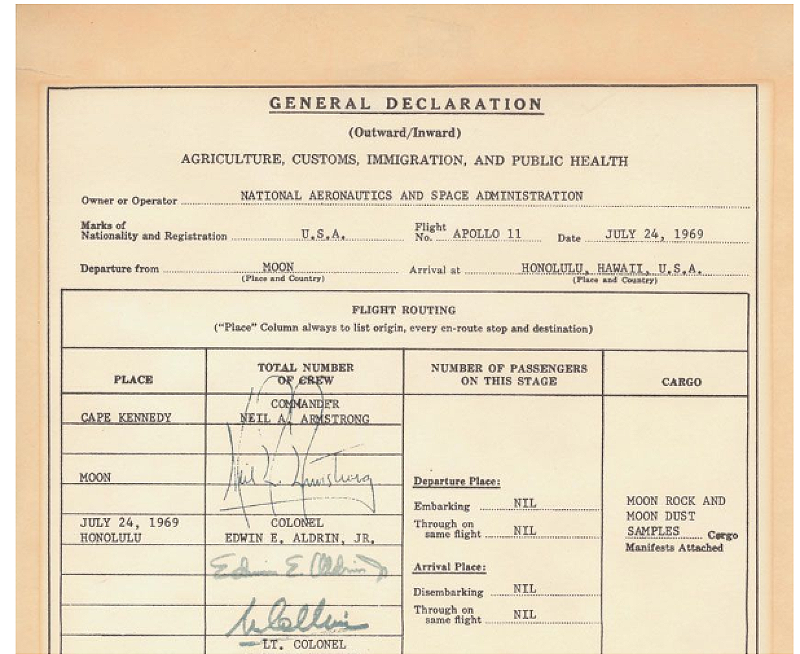 GENERAL DECLARATION
(Outward/Inward)
AGRICULTURE, CUSTOMS, IMMIGRATION, AND PUBLIC HEALTH
Owner or Operator NATIONAL AERONAUTICS AND SPACE ADMINISTRATION
Marks of
Nationality and Registration U.S.A. Flight No. APOLLO 11 Date JULY 24, 1969
Departure from MOON Arrival at HONOLULU, HAWAII, U.S.A.
(Place and Country) (Place and Country)
FLIGHT ROUTING
("Place" Column always to list origin, every en-route stop and destination)
PLACE
TOTAL NUMBER
OF CREW
NUMBER OF PASSENGERS
ON THIS STAGE
CARGO
CAPE KENNEDY
MOON
JULY 24, 1969
HONOLULU
COMMANDER
NEIL A. ARMSTRONG
Neil A. Armstrong
COLONEL
EDWIN E. ALDRIN, JR.
Edwin E. Aldrin Jr
M Collins
LT. COLONEL
Departure Place:
Embarking NIL
Through on
same flight NIL
Arrival Place:
Disembarking NIL
Through on
same flight NIL
MOON ROCK AND
MOON DUST
SAMPLES Cargo
Manifests Attached